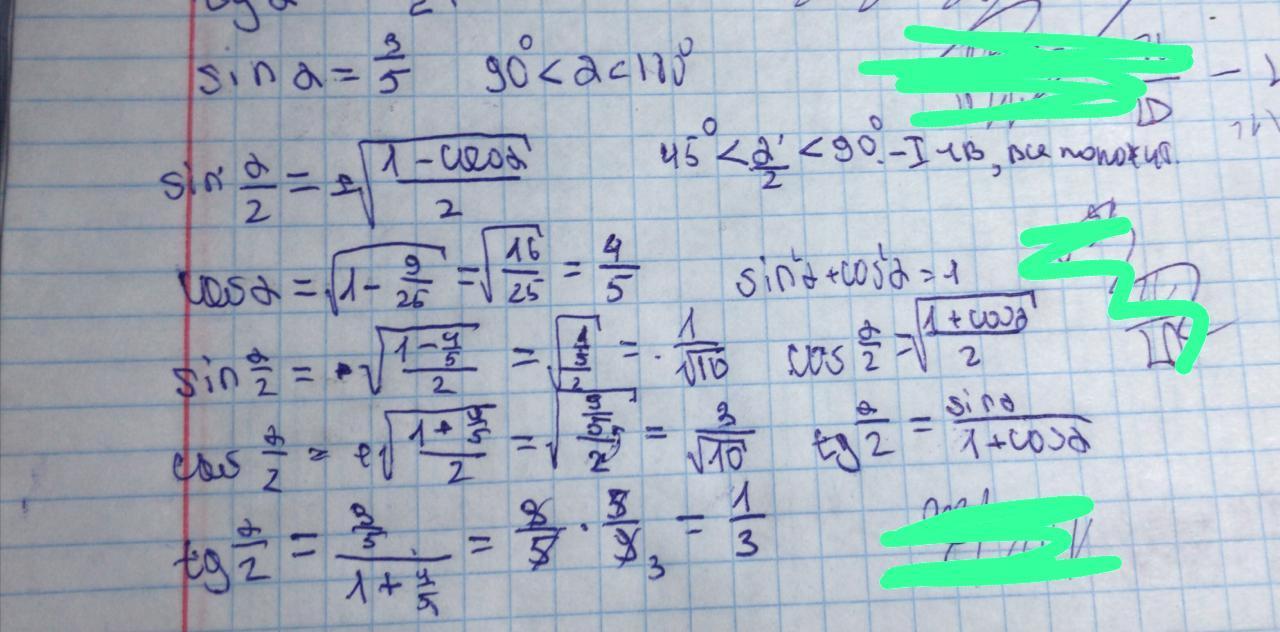 sin α = 3/5 90° < α < 180°
sin α/2 = √((1 - cos α)/2) 45° < α/2 < 90° - I чв, все положит.
cos α = √(1 - 9/25) = √(16/25) = 4/5 sin²α + cos²α = 1
sin α/2 = √((1 - 4/5)/2) = √((1/5)/2) = 1/√10 cos α/2 = √((1 + cos α)/2)
cos α/2 = √((1 + 4/5)/2) = √((9/5)/2) = 3/√10 tg α/2 = sin α/(1 + cos α)
tg α/2 = (3/5)/(1 + 4/5) = 3/5 · 5/9 3 = 1/3